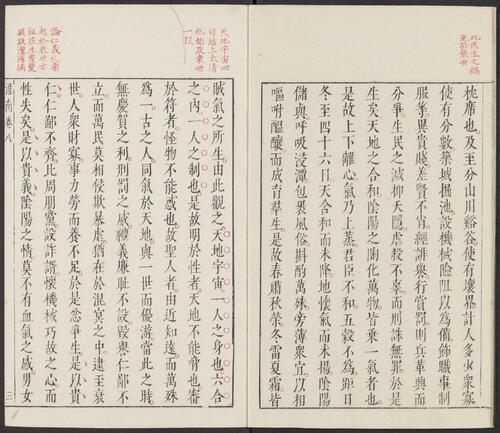 此民生之禍
見於衰世
枕席也及至分山川谿谷使有壤界計人多少衆寡
使有分數築城掘池設機械險阻以為備飾職事制
服等異貴賤差賢不肖經誹譽行賞罰則兵革興而
分爭生民之滅抑夭隱虐殺不辜而刑誅無罪於是
生矣天地之合和陰陽之陶化萬物皆乘一氣者也
是故上下離心氣乃上蒸君臣不和五穀不為距日
冬至四十六日天含和而未降地懷氣而未揚陰陽
儲與呼吸浸潭包裹風俗斟酌萬殊旁薄衆宜以相
嘔咐醞釀而成育羣生是故春肅秋榮冬雷夏霜皆
天地宇宙四
句結上太清
也始及衰世
一段
論仁義禮樂
賊氣之所生由此觀之天地宇宙一人之身也六合
之內一人之制也是故明於性者天地不能脅也審
於符者怪物不能惑也故聖人者由近知遠而萬殊
為一古之人同氣於天地與一世而優游當此之時
無慶賀之利刑罰之威禮義廉恥不設毀譽仁鄙不
立而萬民莫相侵欺暴虐猶在於混冥之中逮至衰
世人衆財寡事力勞而養不足於是忿爭生是以貴
仁仁鄙不齊比周朋黨設詐諝懷機械巧故之心而
性失矣是以貴義陰陽之情莫不有血氣之感男女
淮南卷八
三